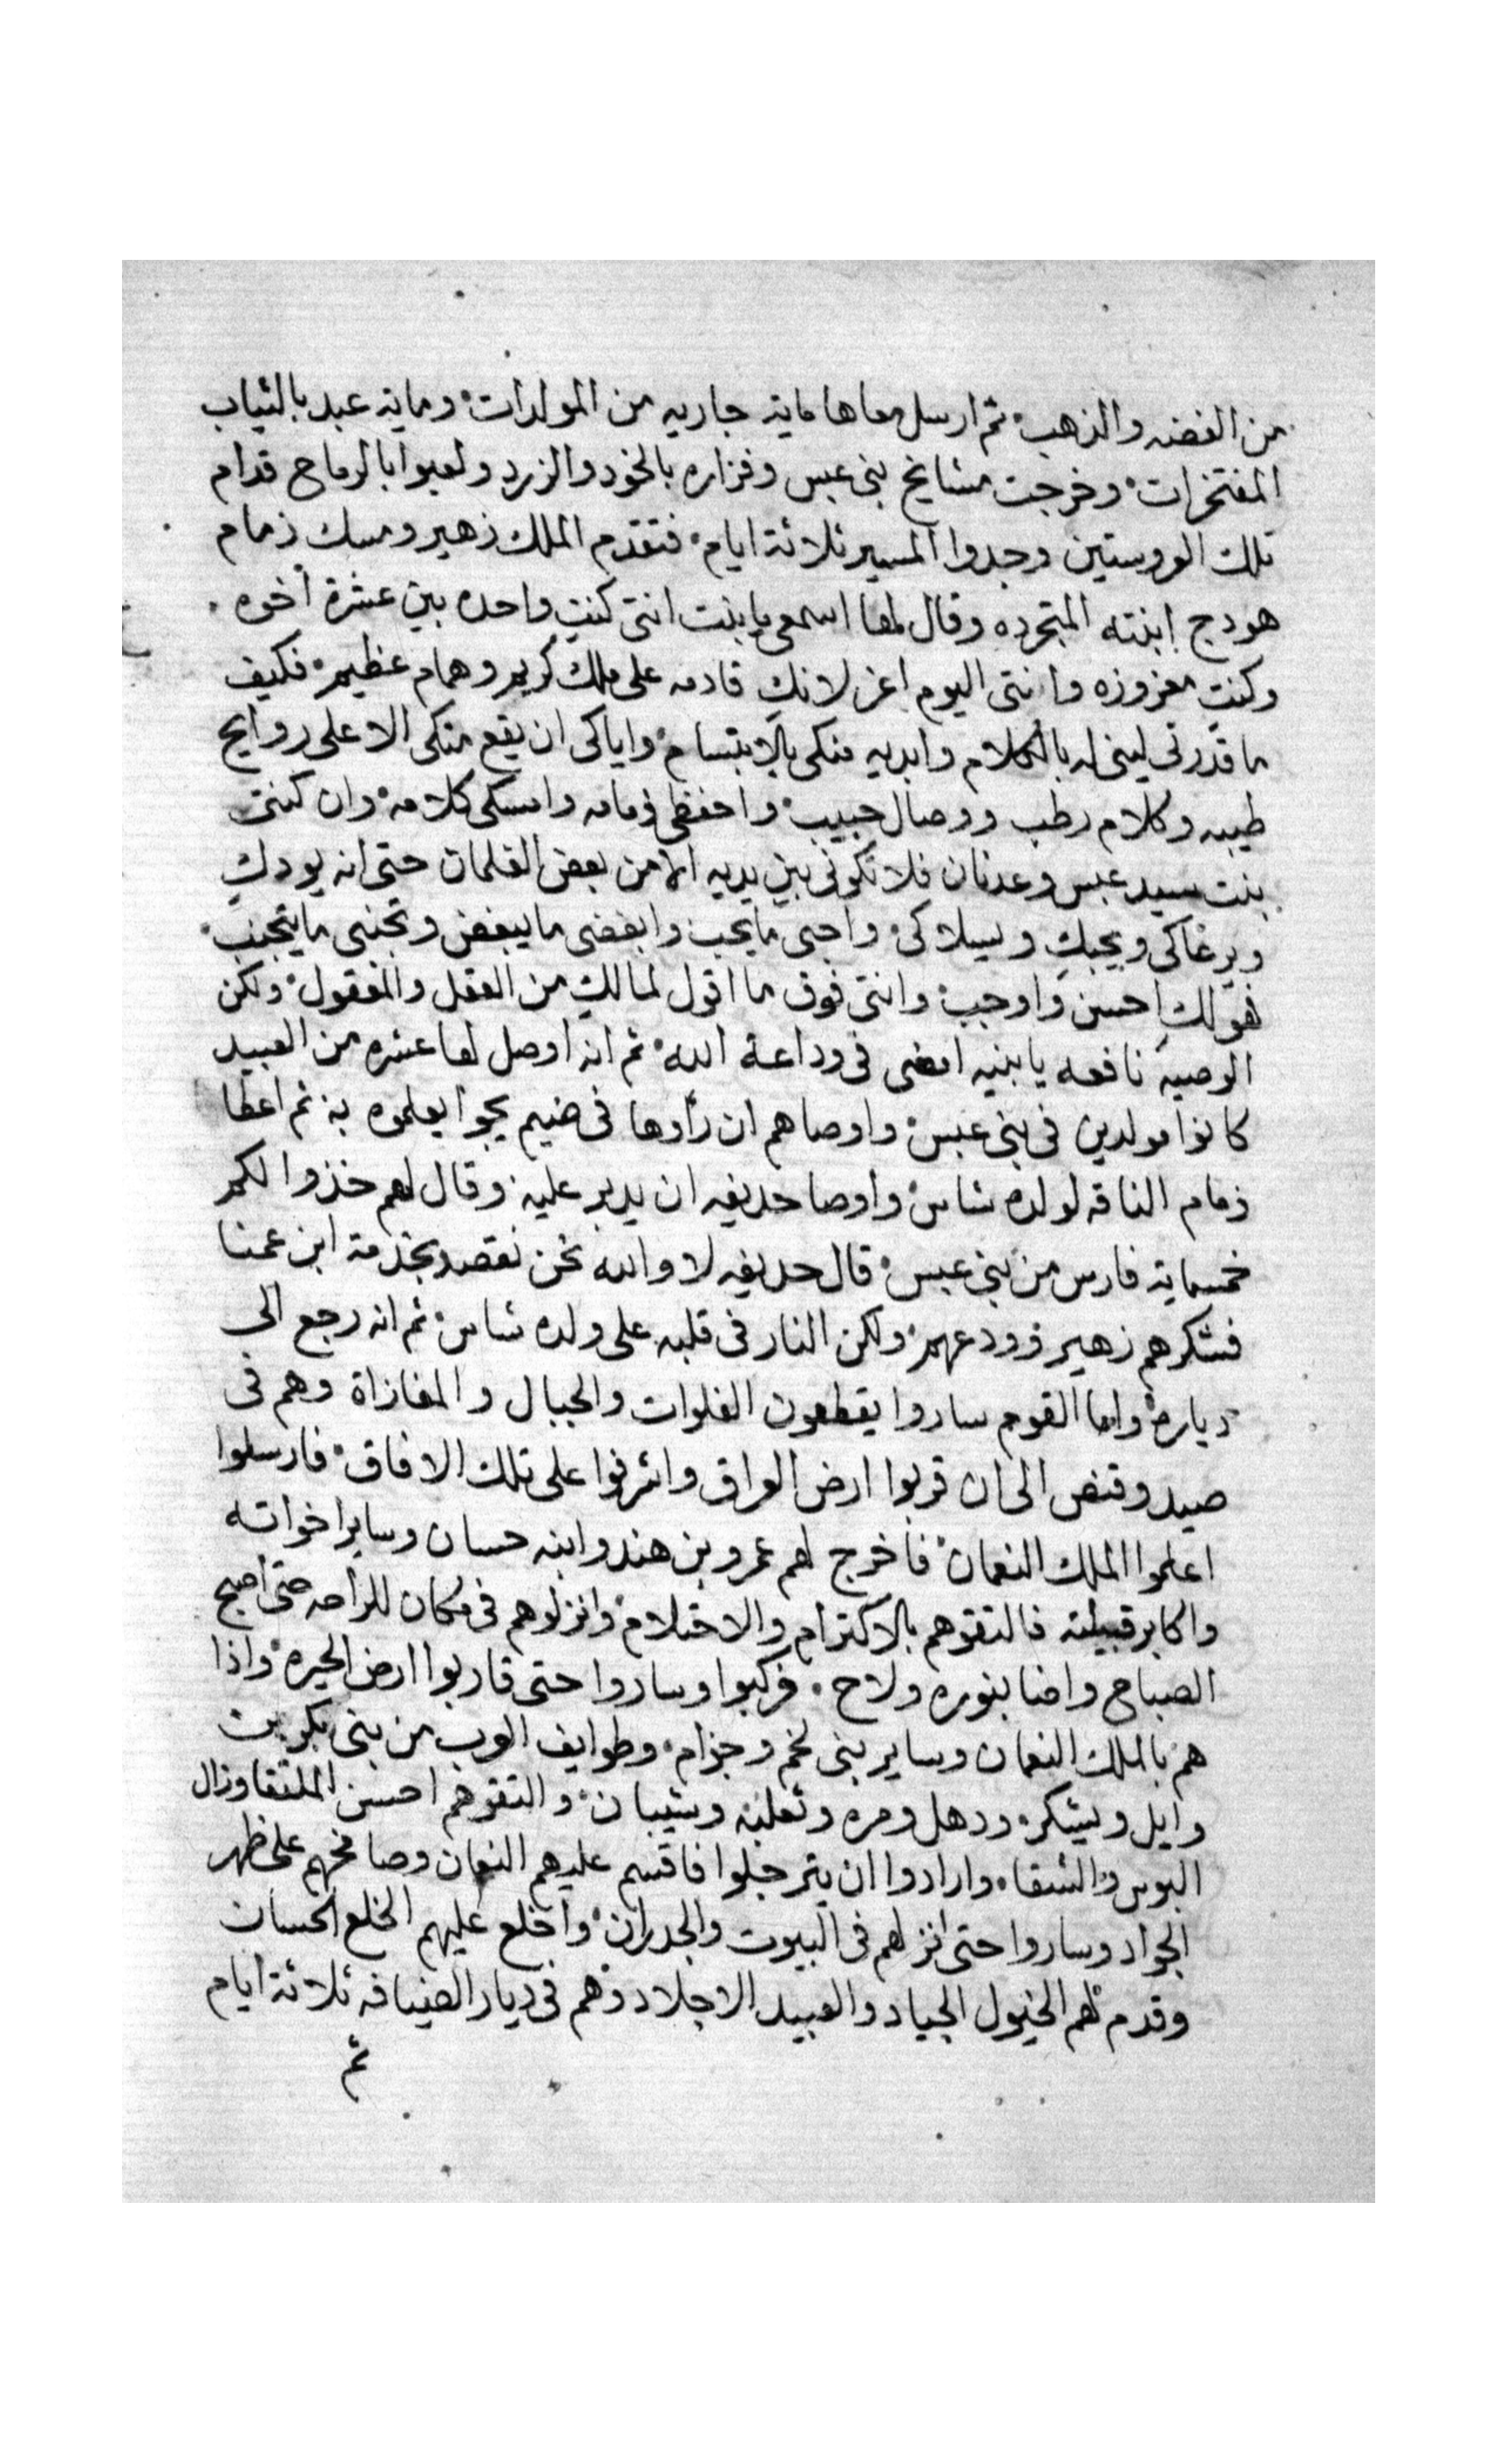 من الفضه والذهب ثم ارسل معاها ماية جاريه من المولدات وماية عبد بالثياب
المفتخرات وخرجت مشايخ بني عبس وفزاره بالخود والزرد ولعبوا بالرماح قدام
تلك العروستين وجدوا المسير ثلاثة ايام فتقدم الملك زهير ومسك زمام
هودج ابنته المتجرده وقال لها اسمعي يا بنت انتي كنتِ واحده بين عشرة اخوه
وكنتِ معزوزه وانتي اليوم اعز لانكِ قادمه على ملك كريم وهمام عظيم فكيف
ما قدرتي ليني له بالكلام وابديه منكي بالابتسام واياكي ان يقع منكي الا على روايح
طيبه وكلام رطب ووصال حبيب واحفظي ذمامه وامسكي كلامه وان كنتي
بنت سيد عبس وعدنان فلا تكوني بين يديه الا من بعض الغلمان حتى انه يودكِ
ويرعاكي ويحبكِ ويسلاكي واحبي ما يحب وابغضي ما يبغض وتجنبي ما يتجنب
فهو لكِ احسن واوجب وانتي فوق ما اقول لما لكِ من العقل والمعقول ولكن
الوصيه نافعه يا بنيه امضي في وداعة الله ثم انه اوصل لها عشره من العبيد
كانوا مولدين في بني عبس واوصاهم ان رأوها في ضيم يجوا يعلموه به ثم اعطا
زمام الناقه لولده شاس واوصا حديفه ان يدير عليه وقال لهم خذوا لكم
خمسماية فارس من بني عبس قال حديفه لا والله نحن نقصد بخدمة ابن عمنا
فشكرهم زهير وودعهم ولكن النار في قلبه على ولده شاس ثم انه رجع الى
دياره واما القوم ساروا يقطعون الفلوات والجبال والمفازاة وهم في
صيد وقنص الى ان قربوا ارض العراق واشرفوا على تلك الافاق فارسلوا
اعلموا الملك النعمان فاخرج لهم عمرو بن هند وابنه حسان وساير اخواته
واكابر قبيلته فالتقوهم بالاكترام والاحتلام وانزلوهم في مكان للراحه حتى اصبح
الصباح واضا بنوره ولاح فركبوا وساروا حتى قاربوا ارض الحيره واذا
هم بالملك النعمان وساير بني لخم وجزام وطوايف العرب من بني بكر بن
وايل ويشكر ودهل ومره وثعلبه وشيبان والتقوهم احسن الملتقا وزال
البوس والشقا وارادوا ان يترجلوا فاقسم عليهم النعمان وصافحهم على ظهر
الجواد وساروا حتى انزلهم في البيوت والجدران واخلع عليهم الخلع الحسان
وقدم لهم الخيول الجياد والعبيد الاجلاد وهم في ديار الضيافه ثلاثة ايام
ثم